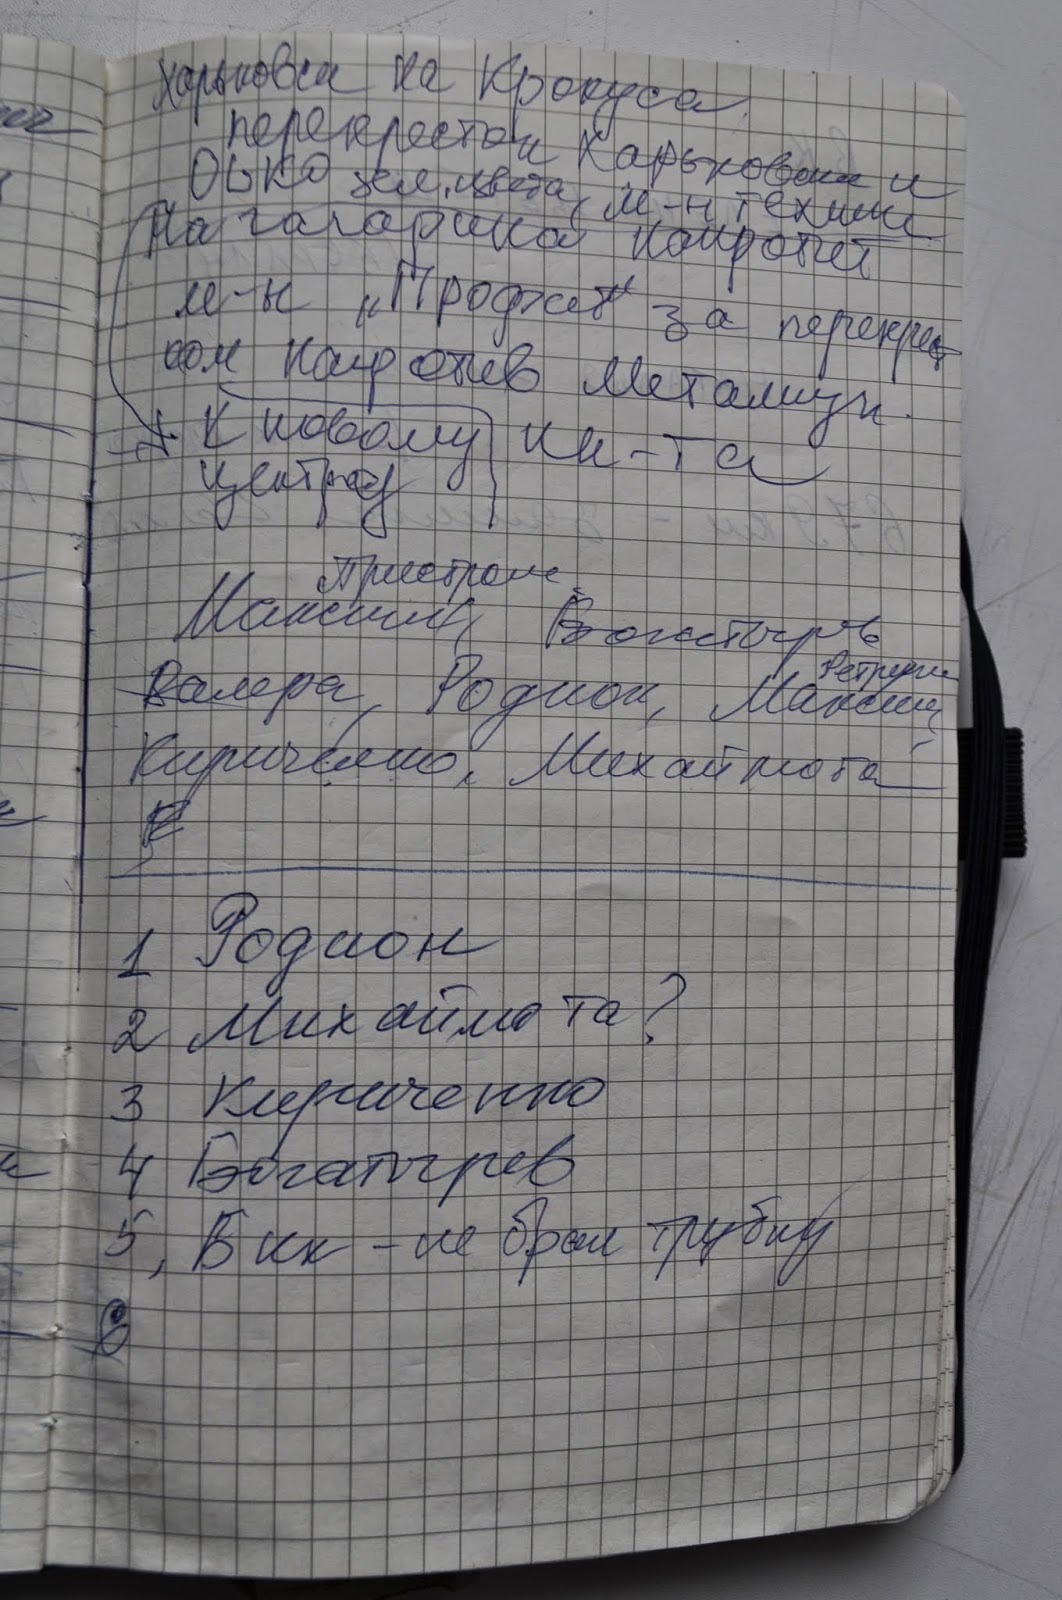 Харьковск на Крокуса
перекресток Харьковск и
ОЬКО зел. цвета, м-н техники
На гагарина напротит
м-н „Проджет" за перекрест
ком напротив Металлург.
к новому кн-та
центру
Пристром
Максим, Богатырев
Ретруги
Валера, Родион, Максим
Кириченко, Михаймота
К
1 Родион
2 Михаймота?
3 Кириченко
4 Богатырев
5, Бик - не брал трубку
6